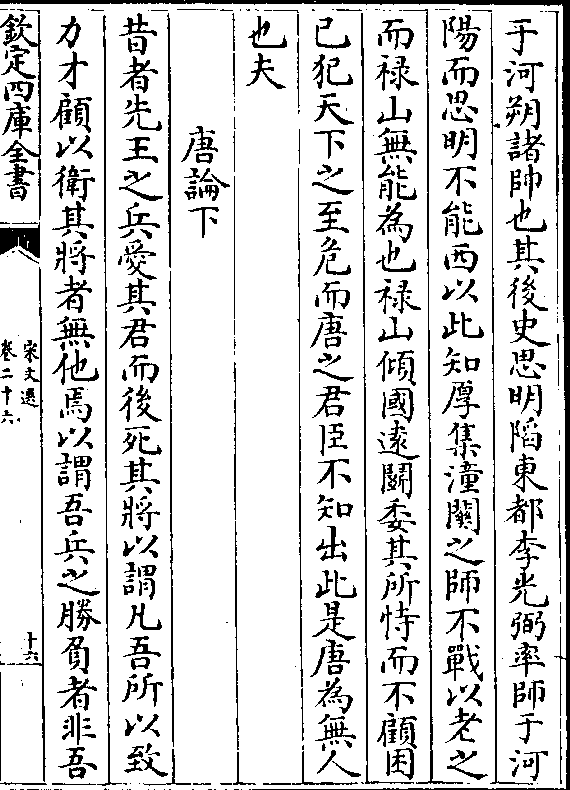 于河朔諸帥也其後史思明陷東都李光弼率師于河
陽而思明不能西以此知厚集潼關之師不戰以老之
而禄山無能為也禄山傾國逺鬬委其所恃而不顧固
已犯天下之至危而唐之君臣不知出此是唐為無人
也夫
唐論下
昔者先王之兵愛其君而後死其將以謂凡吾所以致
力才顧以衛其將者無他焉以謂吾兵之勝負者非吾
欽定四庫全書
宋文選
卷二十六
十六